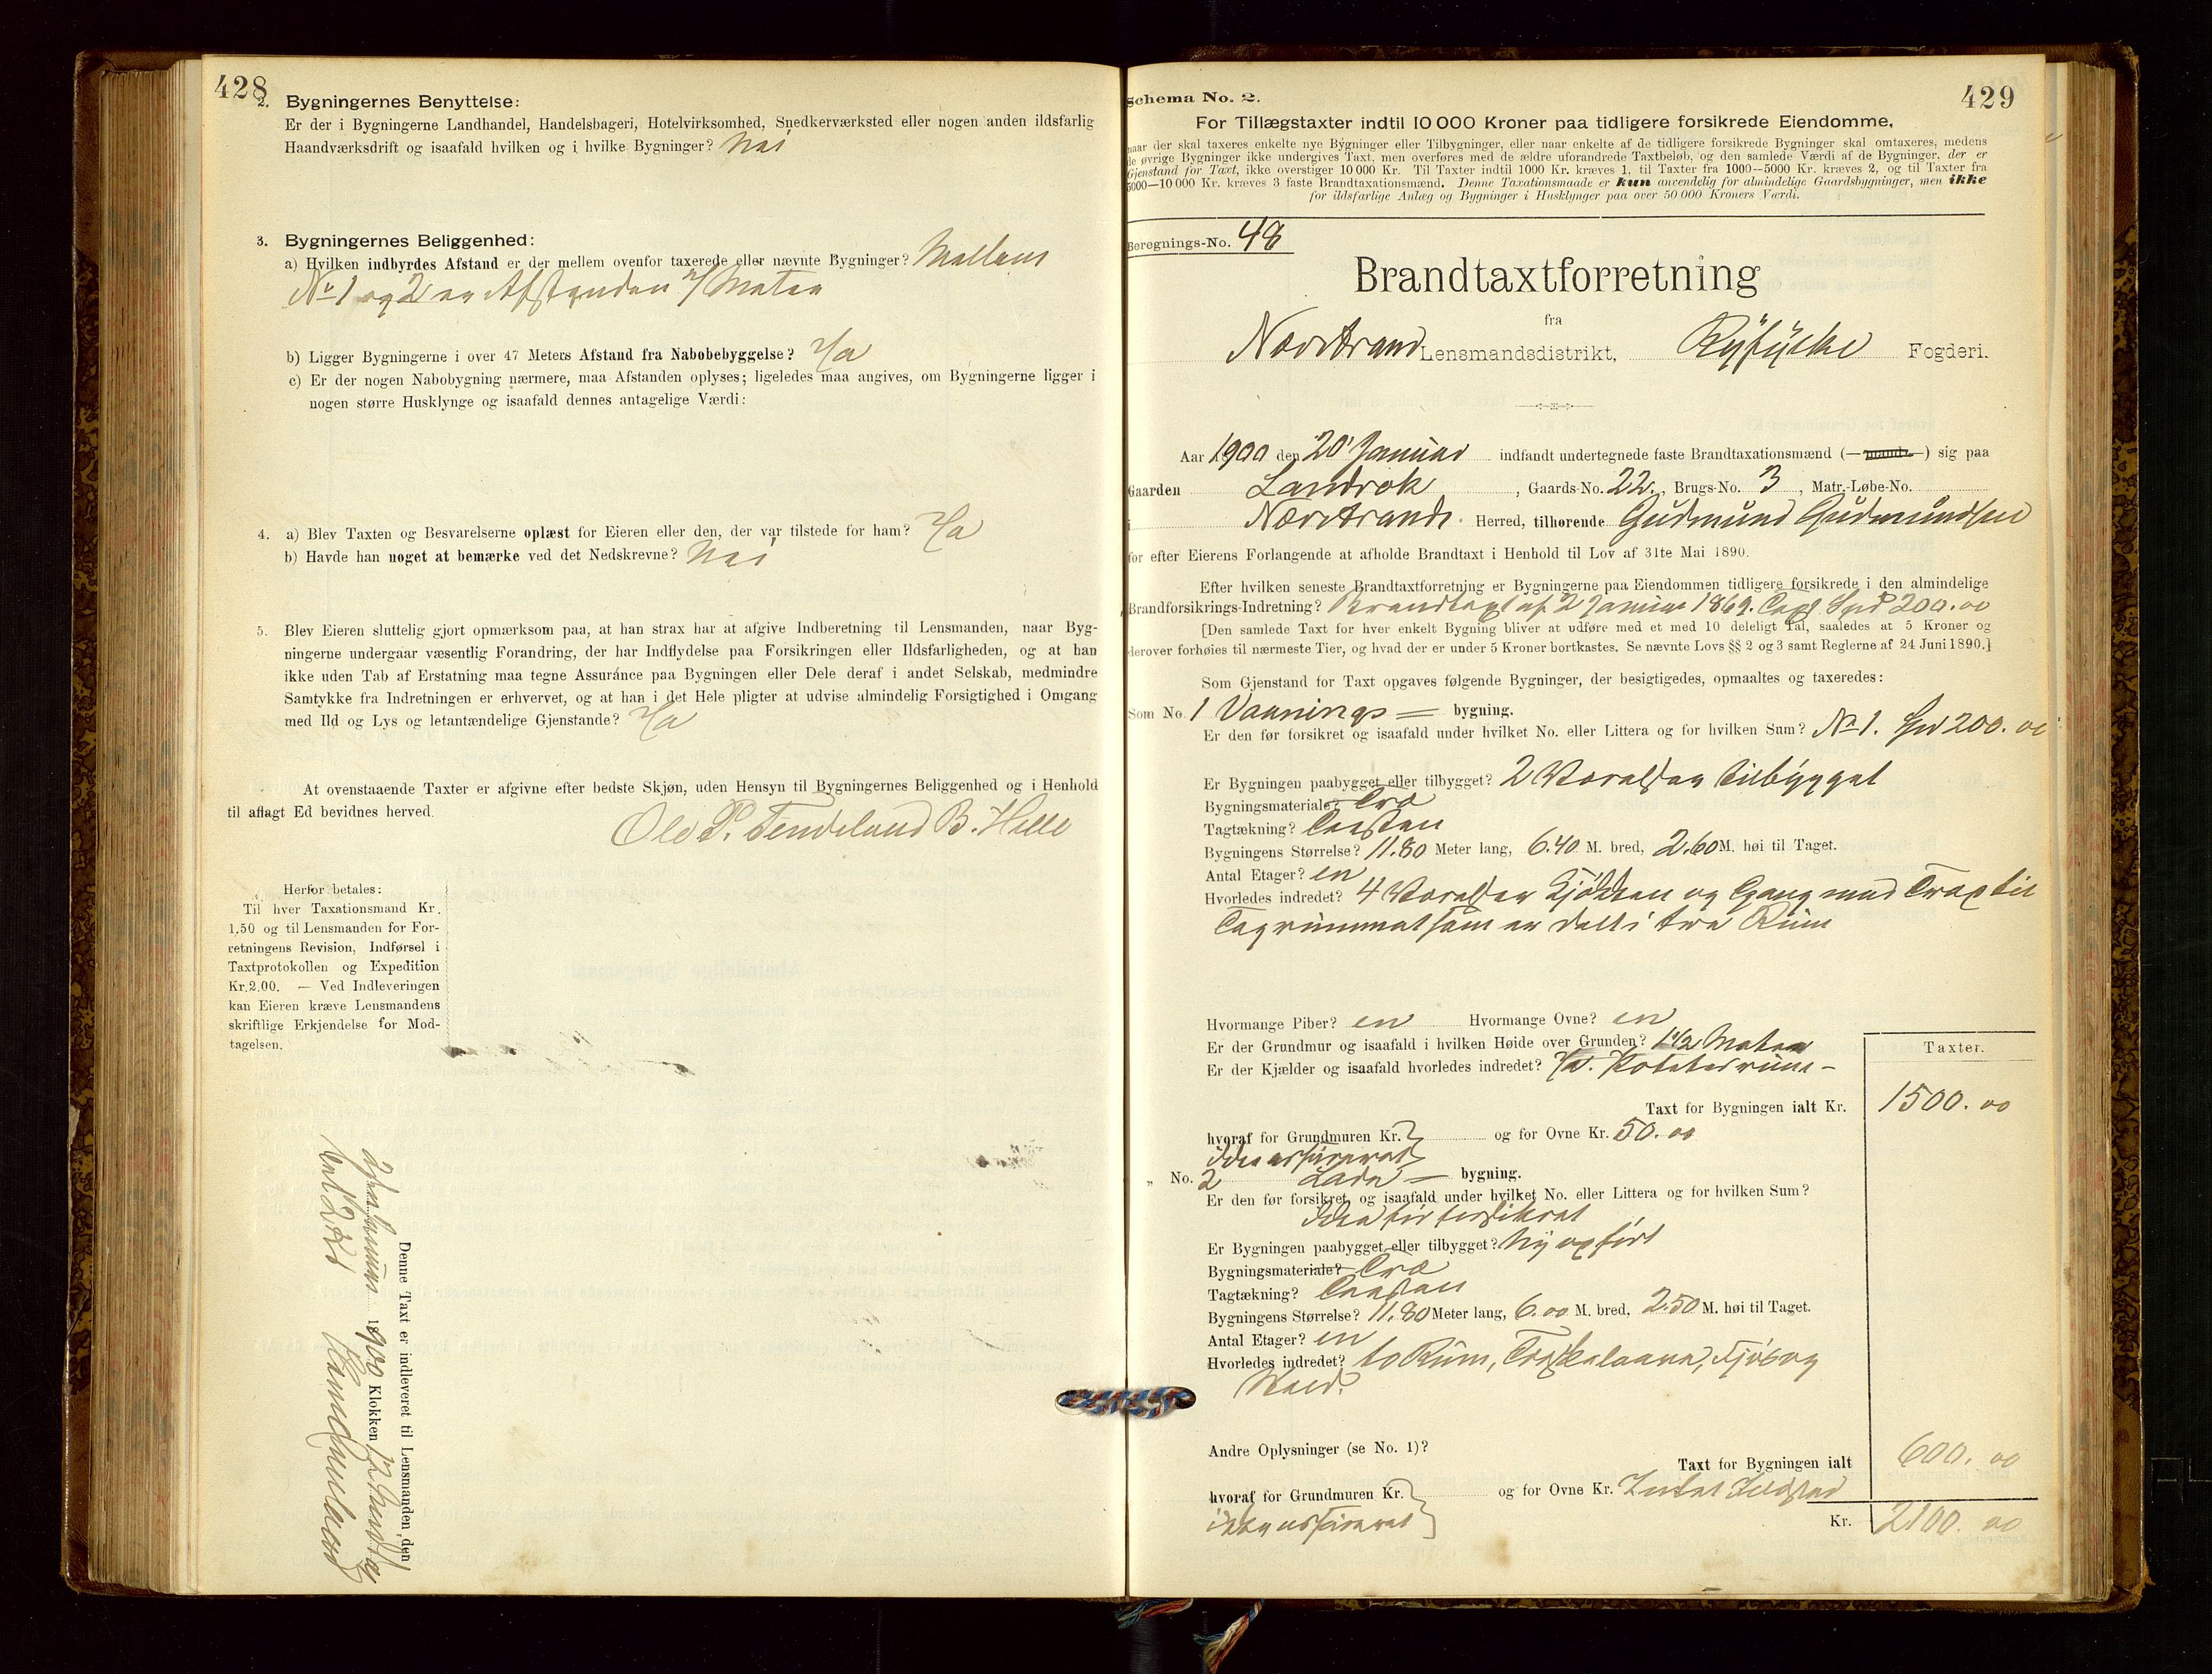 428
2. Bygningernes Benyttelse:
Er der i Bygningerne Landhandel, Handelsbageri, Hotelvirksomhed, Snedkerværksted eller nogen anden ildsfarlig
Haandværksdrift og isaafald hvilken og i hvilke Bygninger? Nei
3. Bygningernes Beliggenhed:
a) Hvilken indbyrdes Afstand er der mellem ovenfor taxerede eller nævnte Bygninger? Mellem
No 1 og 2 er Afstanden Meter
b) Ligger Bygningerne i over 47 Meters Afstand fra Nabobebyggelse? Ja
c) Er der nogen Nabobygning nærmere, maa Afstanden oplyses; ligeledes maa angives, om Bygningerne ligger i
nogen større Husklynge og isaafald dennes antagelige Værdi:
4. a) Blev Taxten og Besvarelserne oplæst for Eieren eller den, der var tilstede for ham? Ja
b) Havde han noget at bemærke ved det Nedskrevne? Nei
5. Blev Eieren sluttelig gjort opmærksom paa, at han strax har at afgive Indberetning til Lensmanden, naar Byg-
ningerne undergaar væsentlig Forandring, der har Indflydelse paa Forsikringen eller Ildsfarligheden, og at han
ikke uden Tab af Erstatning maa tegne Assurance paa Bygningen eller Dele deraf i andet Selskab, medmindre
Samtykke fra Indretningen er erhvervet, og at han i det Hele pligter at udvise almindelig Forsigtighed i Omgang
med Ild og Lys og letantændelige Gjenstande? Ja
At ovenstaaende Taxter er afgivne efter bedste Skjøn, uden Hensyn til Bygningernes Beliggenhed og i Henhold
til aflagt Ed bevidnes herved.
Ole P. Tendeland B. Helle
Herfor betales:
Til hver Taxationsmand Kr.
1,50 og til Lensmanden for For-
retningens Revision, Indførsel i
Taxtprotokollen og Expedition
Kr. 2.00. — Ved Indleveringen
kan Eieren kræve Lensmandens
skriftlige Erkjendelse for Mod-
tagelsen.
Denne Taxt er indleveret til Lensmanden den
Januar 1900 Klokken 12
429
Schema No. 2.
For Tillægstaxter indtil 10 000 Kroner paa tidligere forsikrede Eiendomme,
naar der skal taxeres enkelte nye Bygninger eller Tilbygninger, eller naar enkelte af de tidligere forsikrede Bygninger skal omtaxeres, medens
de øvrige Bygninger ikke undergives Taxt, men overføres med de ældre uforandrede Taxtbeløb, og den samlede Værdi af de Bygninger, der er
Gjenstand for Taxt, ikke overstiger 10 000 Kr. Til Taxter indtil 1000 Kr. kræves 1, til Taxter fra 1000—5000 Kr. kræves 2, og til Taxter fra
5000—10 000 Kr. kræves 3 faste Brandtaxationsmænd. Denne Taxationsmaade er kun anvendelig for almindelige Gaardsbygninger, men ikke
for ildsfarlige Anlæg og Bygninger i Husklynger paa over 50 000 Kroners Værdi.
Beregnings-No. 48
Brandtaxtforretning
fra
Nærstrand Lensmandsdistrikt, Ryfylke Fogderi.
Aar 1900 den 20 Januar indfandt undertegnede faste Brandtaxationsmænd (—mand—) sig paa
Gaarden Landrok, Gaards-No. 22., Brugs-No. 3, Matr.-Løbe-No.
i Nærstrands Herred, tilhørende Gudmund Gudmundsen
for efter Eierens Forlangende at afholde Brandtaxt i Henhold til Lov af 31te Mai 1890.
Efter hvilken seneste Brandtaxtforretning er Bygningerne paa Eiendommen tidligere forsikrede i den almindelige
Brandforsikrings-Indretning? Brandtaxt af 2 Januar 1869. Taxt Spd 200.00
[Den samlede Taxt for hver enkelt Bygning bliver at udføre med et med 10 deleligt Tal, saaledes at 5 Kroner og
derover forhøies til nærmeste Tier, og hvad der er under 5 Kroner bortkastes. Se nævnte Lovs §§ 2 og 3 samt Reglerne af 24 Juni 1890.]
Som Gjenstand for Taxt opgaves følgende Bygninger, der besigtigedes, opmaaltes og taxeredes:
Som No. 1 Vaanings — bygning.
Er den før forsikret og isaafald under hvilket No. eller Littera og for hvilken Sum? No 1. Spd 200.00
Er Bygningen paabygget eller tilbygget? 2 Værelser tilbygget
Bygningsmateriale? Træ
Tagtækning? Tagsten
Bygningens Størrelse? 11.80 Meter lang, 6.40 M. bred, 2.60 M. høi til Taget.
Antal Etager? en
Hvorledes indredet? 4 Værelser Kjøkken og Gang med Trap til
Tagrummet som er delt i tre Rum
Hvormange Piber? en Hvormange Ovne? en
Er der Grundmur og isaafald i hvilken Høide over Grunden? 1 1/2 Meter
Er der Kjælder og isaafald hvorledes indredet? Ja. Potetesrum –
Taxter.
Taxt for Bygningen ialt Kr. 1500.00
hvoraf for Grundmuren Kr. og for Ovne Kr. 50.00
ikke assureret
„ No. 2 Lade — bygning.
Er den før forsikret, og isaafald under hvilket No. eller Littera og for hvilken Sum?
Ikke før forsikret
Er Bygningen paabygget eller tilbygget? Ny opført
Bygningsmateriale? Træ
Tagtækning? Tagsten
Bygningens Størrelse? 11.80 Meter lang, 6.00 M. bred, 2.50 M. høi til Taget.
Antal Etager? en
Hvorledes indredet? to Rum, Træskelaave, Fjøs og
Andre Oplysninger (se No. 1)?
Taxt for Bygningen ialt 600.00
hvoraf for Grundmuren Kr. og for Ovne Kr. Intet Ildsted
ikke assureret
Kr. 2100.00